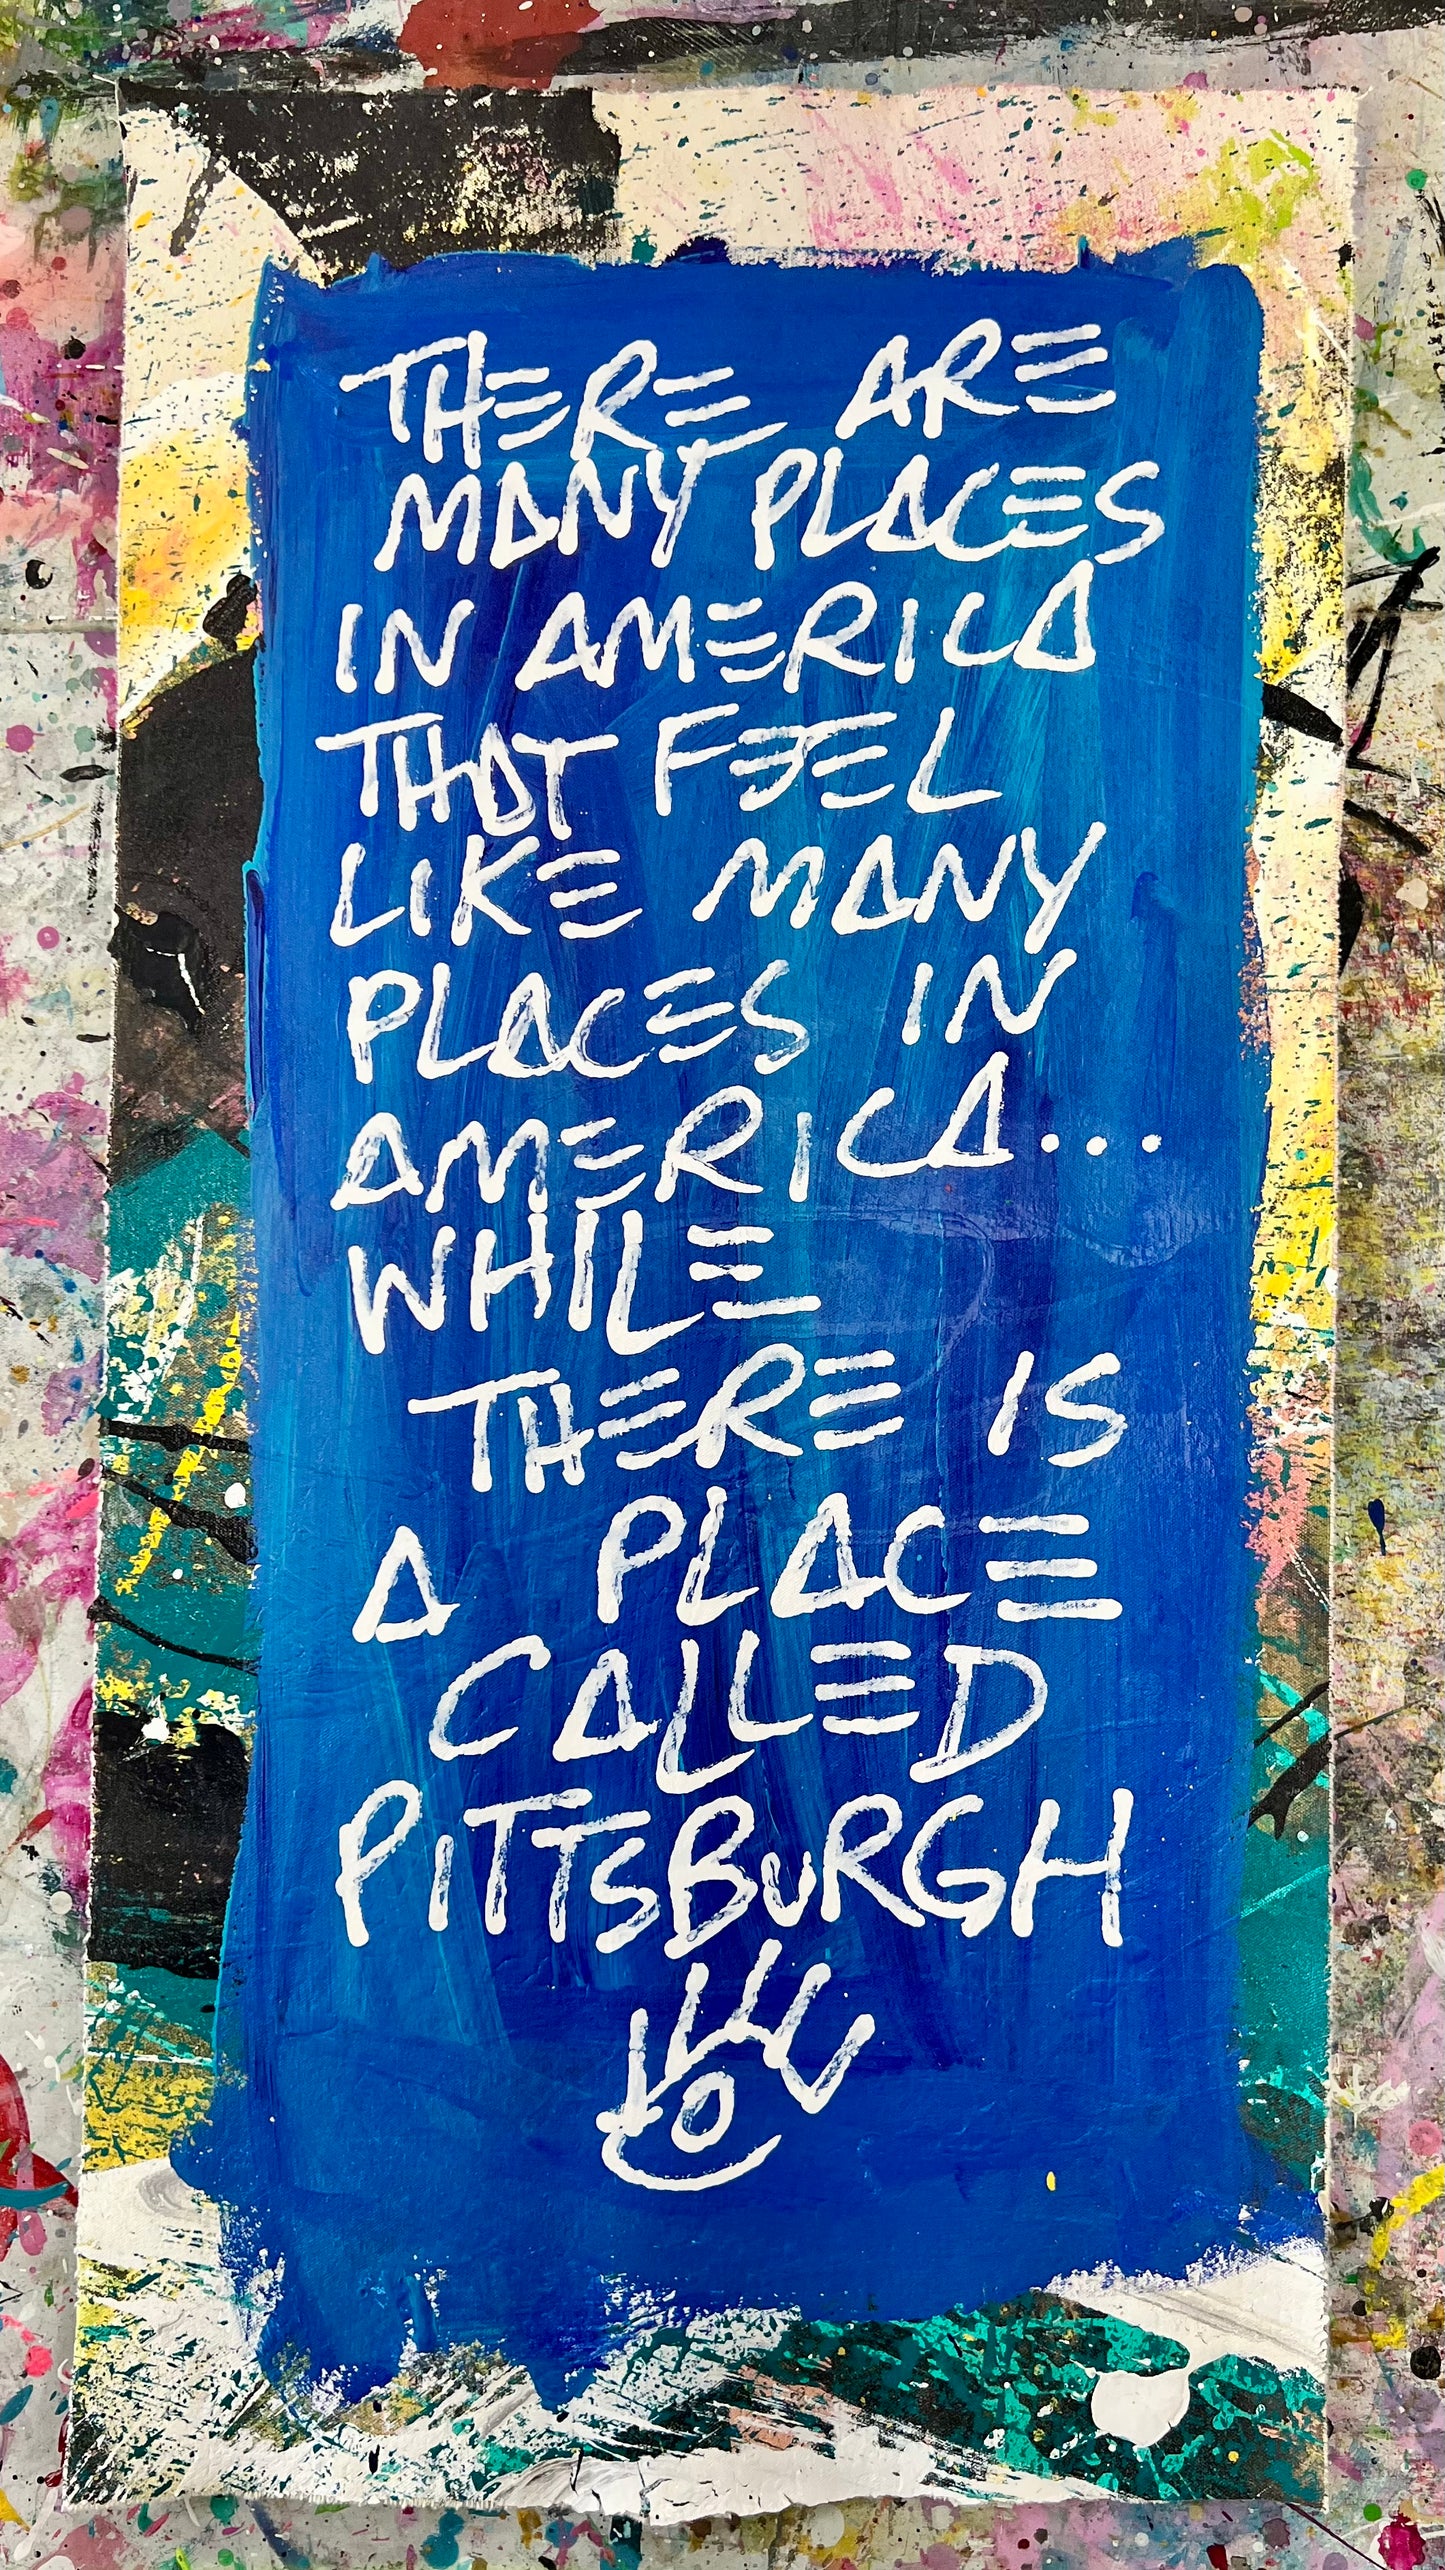 THERE ARE
MANY PLACES
IN AMERICA
THAT FEEL
LIKE MANY
PLACES IN
AMERICA...
WHILE
THERE IS
A PLACE
CALLED
PITTSBURGH